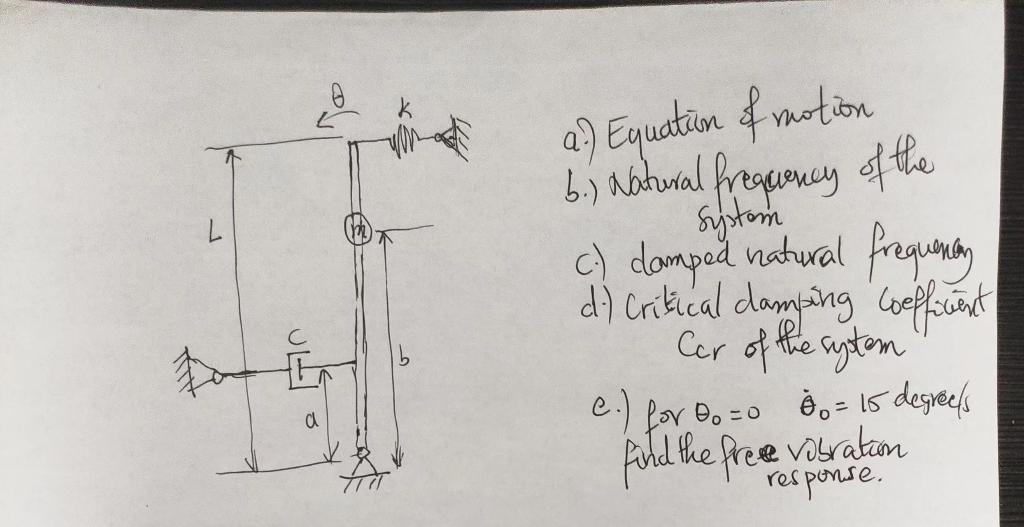 θ
K
L
m
C
b
a
a.) Equation of motion
b.) Natural frequency of the
system
c.) damped natural frequency
d.) Critical damping Coefficient
Ccr of the system
e.) for θ₀ = 0 θ̇₀ = 15 degree/s
find the free vibration
response.